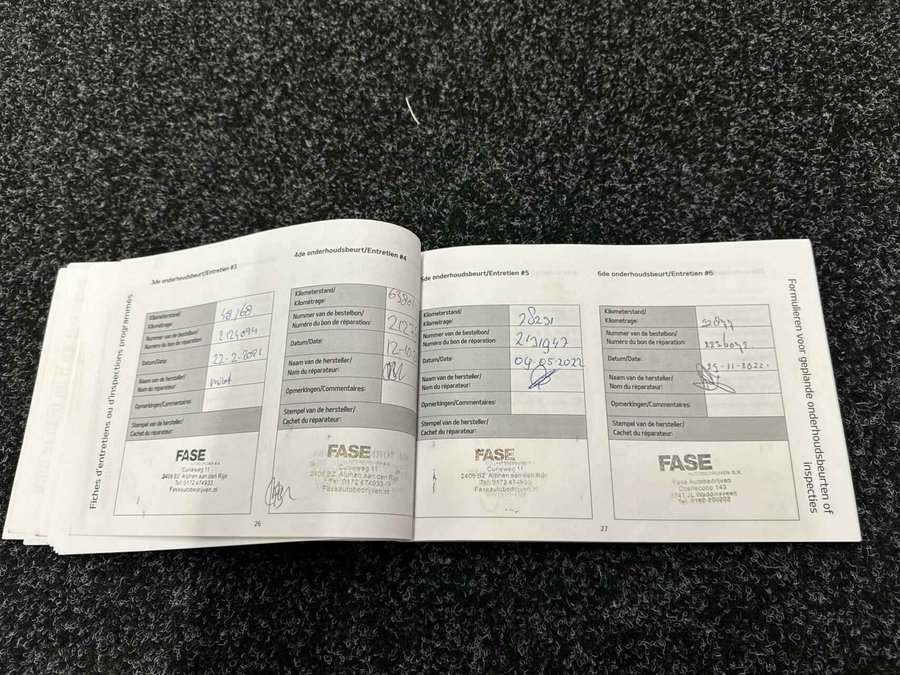 Fiches d'entretiens ou d'inspections programmés
3de onderhoudsbeurt/Entretien #3
Kilometerstand/
Kilométrage:
48168
Nummer van de bestelbon/
Numéro du bon de réparation
2124094
Datum/Date:
22-2-2021
Naam van de hersteller/
Nom du réparateur:
Opmerkingen/Commentaires:
Stempel van de hersteller/
Cachet du réparateur:
FASE
AUTOBEDRIJVEN B.V.
Curieweg 11
2408 BZ Alphen aan den Rijn
Tel: 0172 474933
Faseautobedrijven.nl
26
4de onderhoudsbeurt/Entretien #4
Kilometerstand/
Kilométrage:
Nummer van de bestelbon/
Numéro du bon de réparation:
Datum/Date:
Naam van de hersteller/
Nom du réparateur:
Opmerkingen/Commentaires:
Stempel van de hersteller/
Cachet du réparateur:
FASE
Curieweg 11
2408 BZ Alphen aan den Rijn
Tel: 0172 474933
Faseautobedrijven.nl
5de onderhoudsbeurt/Entretien #5
Kilometerstand/
Kilométrage:
78231
Nummer van de bestelbon/
Numéro du bon de réparation:
Datum/Date:
04-05-2022
Naam van de hersteller/
Nom du réparateur:
Opmerkingen/Commentaires:
Stempel van de hersteller/
Cachet du réparateur:
FASE
Curieweg 11
2408 BZ Alphen aan den Rijn
Tel: 0172 474933
Faseautobedrijven.nl
6de onderhoudsbeurt/Entretien #6
Kilometerstand/
Kilométrage:
Nummer van de bestelbon/
Numéro du bon de réparation:
2236042
Datum/Date:
29-11-2022
Naam van de hersteller/
Nom du réparateur:
Opmerkingen/Commentaires:
Stempel van de hersteller/
Cachet du réparateur:
FASE
AUTOBEDRIJVEN B.V.
Fase Autobedrijven
Coenecoop 143
2741 JL Waddinxveen
Tel: 0182-200203
27
Formulieren voor geplande onderhoudsbeurten of
inspecties